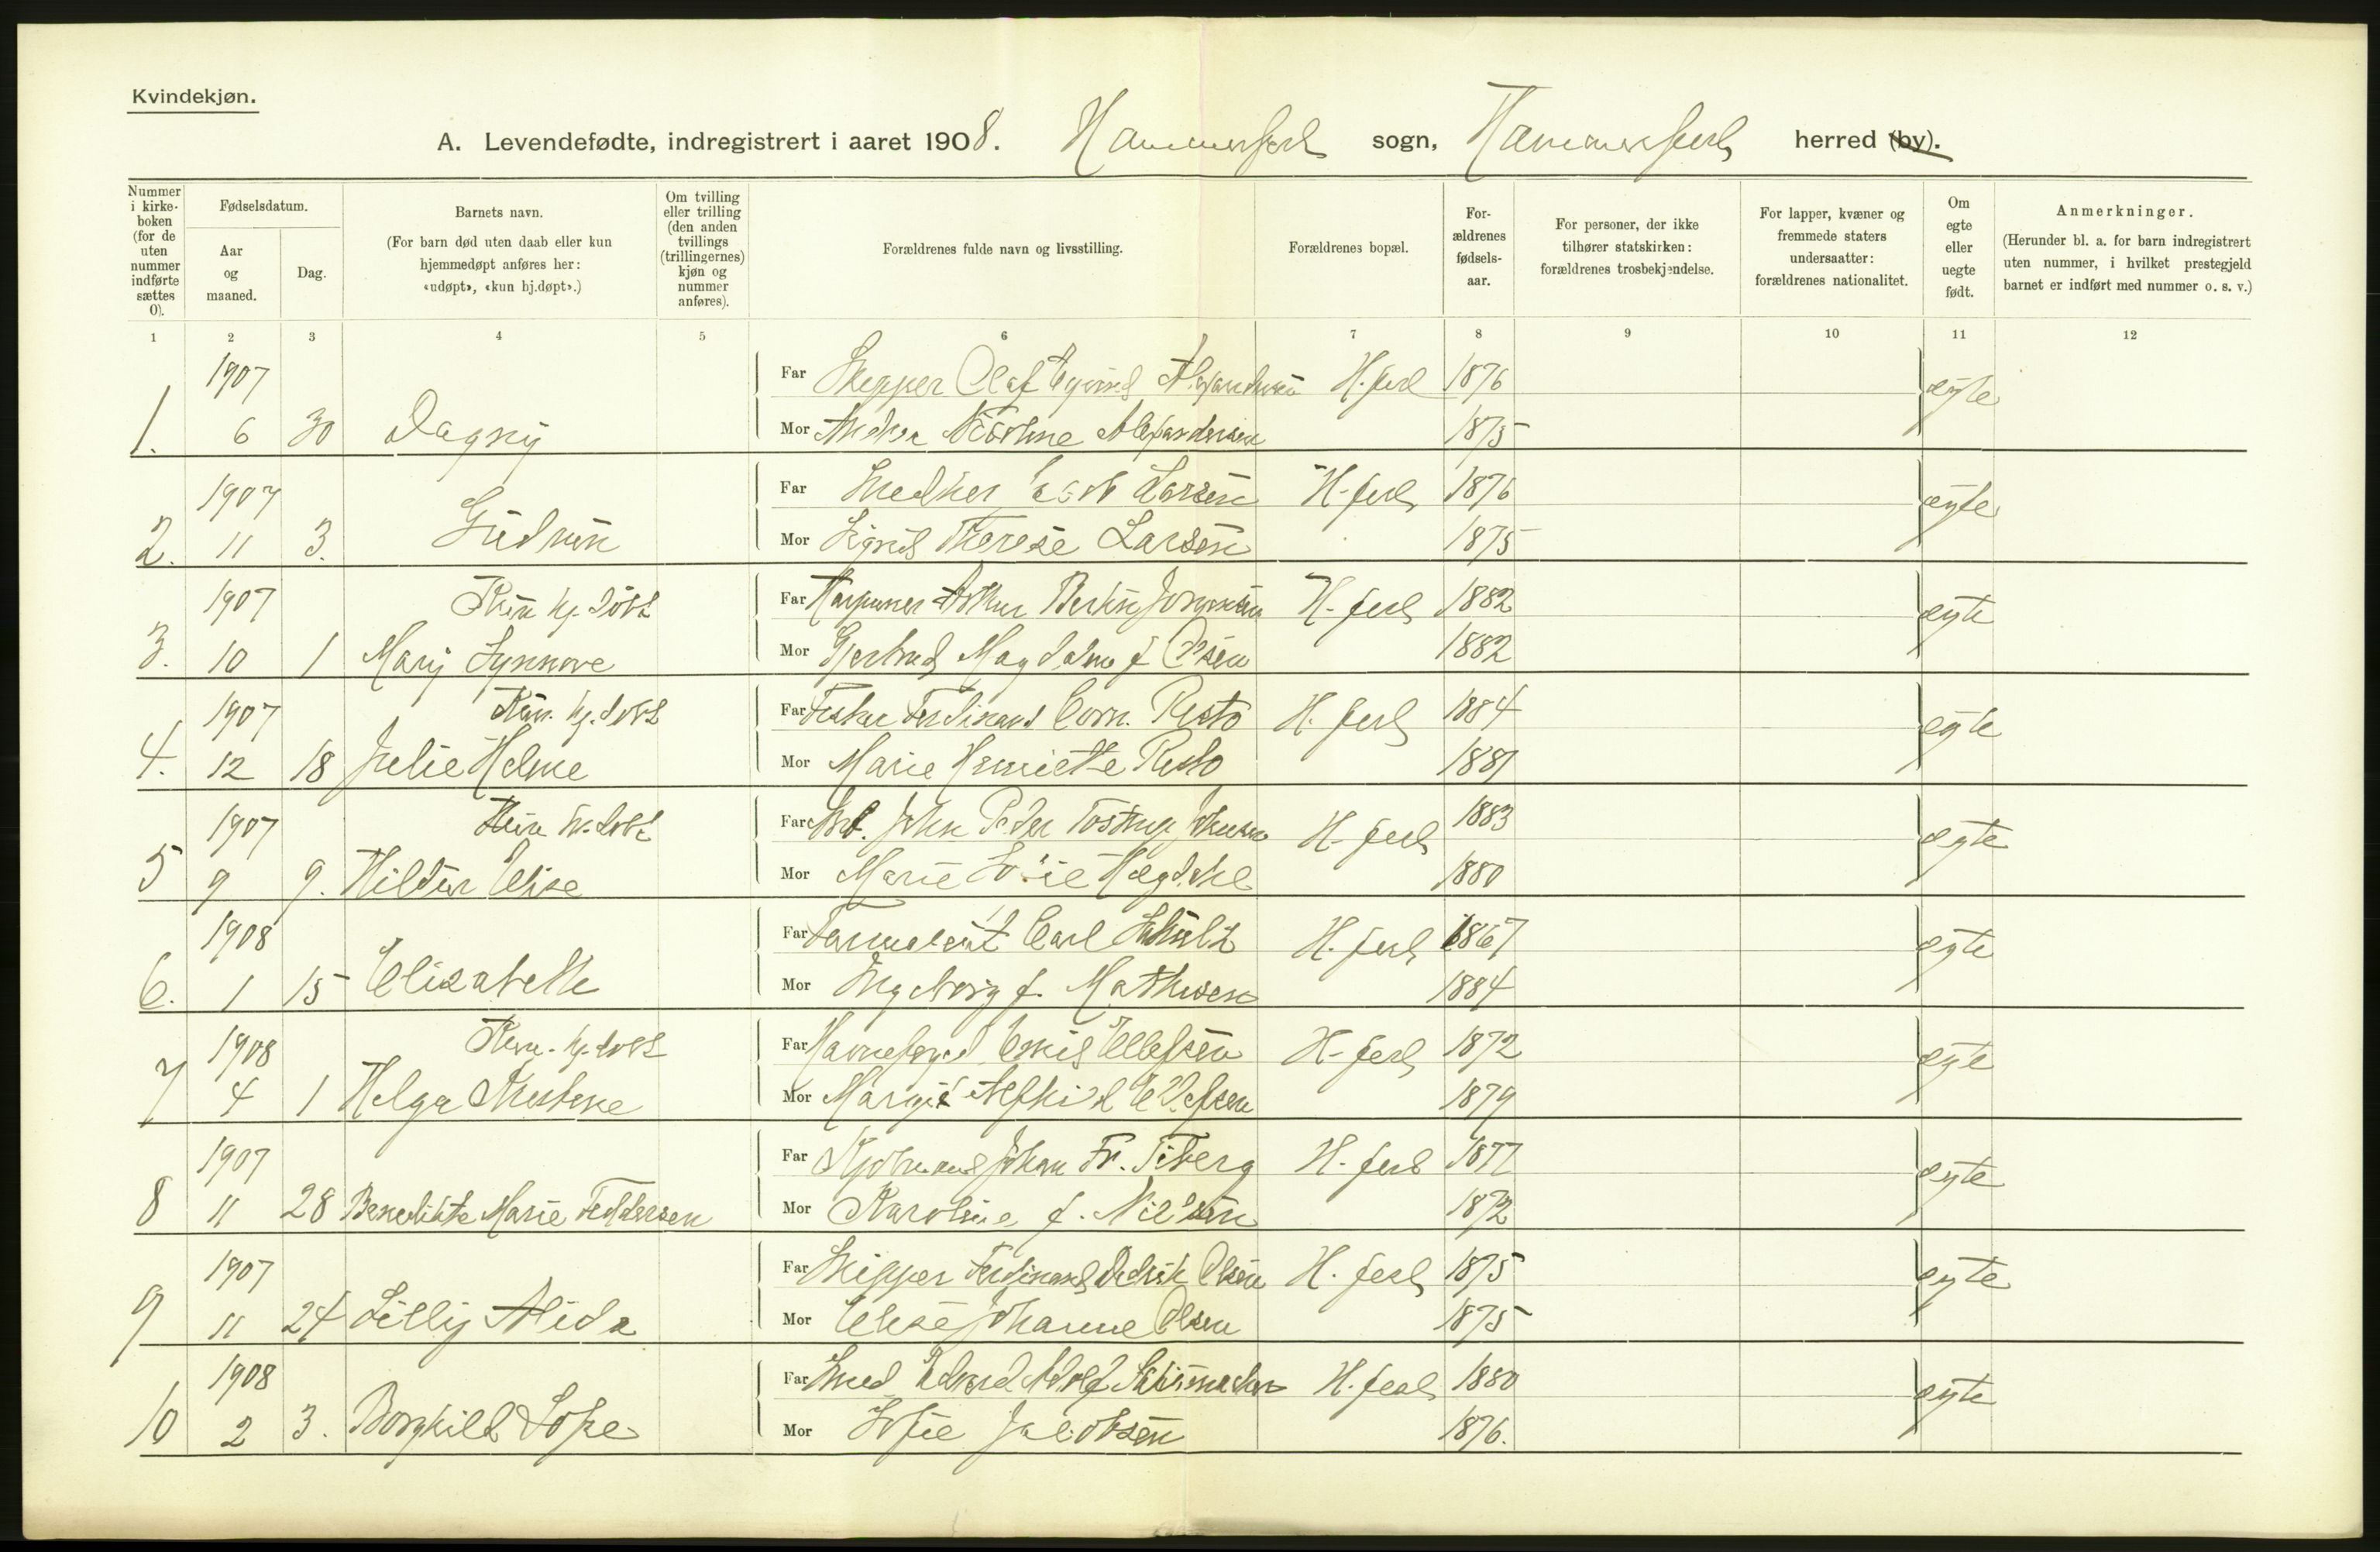 Kvindekjøn.
A. Levendefødte, indregistrert i aaret 1908. Hammerfest sogn, Hammerfest herred (by).
Nummer i kirke-boken (for de uten nummer indførte sættes 0).
Fødselsdatum.
Aar og maaned.
Dag.
Barnets navn.
(For barn død uten daab eller kun hjemmedøpt anføres her: «udøpt», «kun hj.døpt».)
Om tvilling eller trilling (den anden tvillings (trillingernes) kjøn og nummer anføres).
Forældrenes fulde navn og livsstilling.
Forældrenes bopæl.
For-ældrenes fødsels-aar.
For personer, der ikke tilhører statskirken: forældrenes trosbekjendelse.
For lapper, kvæner og fremmede staters undersaatter: forældrenes nationalitet.
Om egte eller uegte født.
Anmerkninger.
(Herunder bl. a. for barn indregistrert uten nummer, i hvilket prestegjeld barnet er indført med nummer o. s. v.)
1 2 3 4 5 6 7 8 9 10 11 12
1907 Far Skipper Olaf Alexandersen H.fest 1876 ægte
1. 6 30 Dagny Mor Andrea Alexandersen 1875
1907 Far Larsen H.fest 1876 ægte
2. 11 3. Gudrun Mor Sigrid Therese Larsen 1875
1907 Kun hj. døbt Far H.fest 1882 ægte
3. 10 1 Mary Synnøve Mor Gjertrud Magdalene f. Olsen 1882
1907 Kun. hj. døbt Far Fisker Ferdinand Corn. Risto H. fest 1884 ægte
4. 12 18 Julie Helene Mor Marie Henriette Risto 1881
1907 Kun hj. døbt Far Arb. John Peder Tostrup Johnsen H. fest 1883 ægte
5 9 9. Hildur Elise Mor Marie 1880
1908 Far Carl Schultz H. fest 1867 ægte
6. 1 15 Elisabeth Mor Ingeborg f. Mathisen 1884
1908 Kun. hj. døbt Far Havnefoged Emil Ellefsen H. fest 1872 ægte
7 4 1 Helga Mor Alfhild Ellefsen 1879
1907 Far Kjøbmand Johan Fr. Tiberg H. fest 1877 ægte
8 11 28 Benedikte Marie Feddersen Mor Karoline f. Nilsen 1872
1907 Far Skipper Ferdinand Didrik Olsen H. fest 1875 ægte
9 11 24 Lilly Alida Mor Elise Johanne Olsen 1875
1908 Far Smed Edvard Adolf H. fest 1880 ægte
10 2 3. Borghild Sofie Mor Sofie Jacobsen 1876.